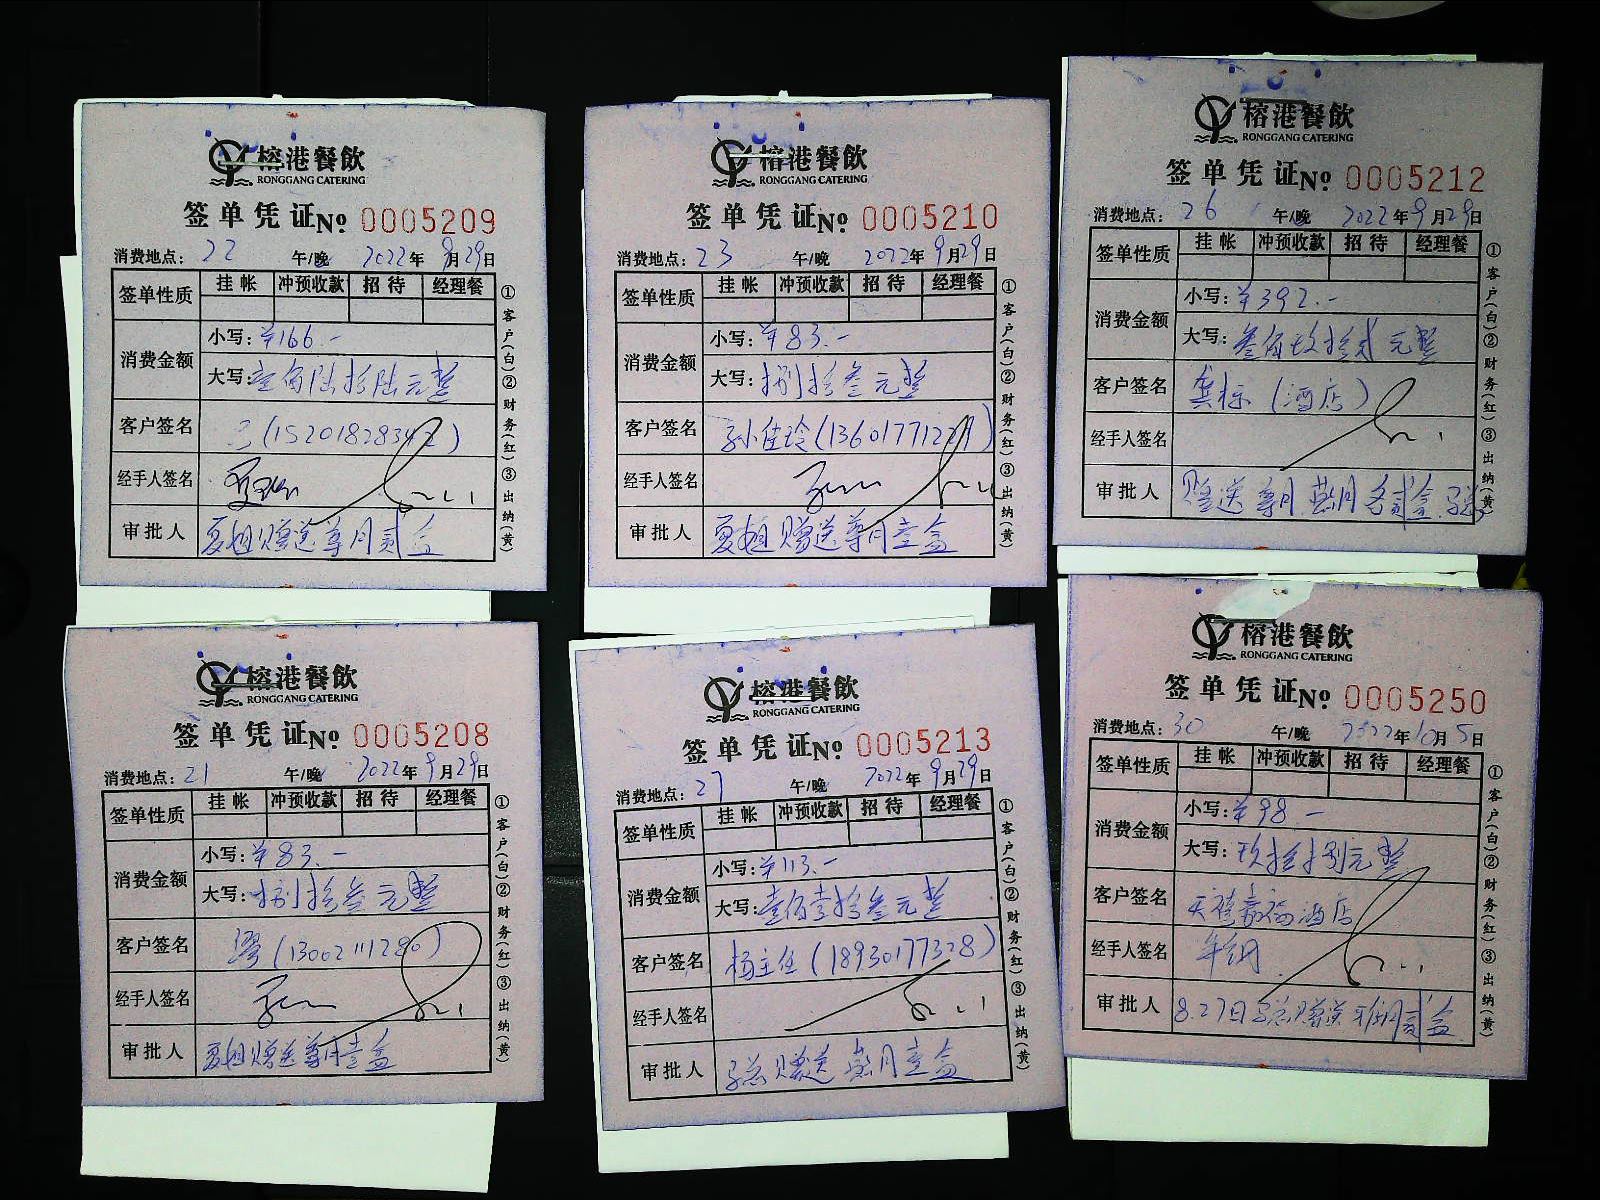 榕港餐飲
RONGGANG CATERING
签单凭证 № 0005209
消费地点：22 午/晚 2022年9月29日
签单性质 挂帐 冲预收款 招待 经理餐
消费金额 小写：¥166.-
大写：壹佰陆拾陆元整
客户签名 (15201828342)
经手人签名
审批人 夏姐赠送尊月贰盒
①客户(白)②财务(红)③出纳(黄)
榕港餐飲
RONGGANG CATERING
签单凭证 № 0005210
消费地点：23 午/晚 2022年9月29日
签单性质 挂帐 冲预收款 招待 经理餐
消费金额 小写：¥83.-
大写：捌拾叁元整
客户签名 孙佳玲(13601771279)
经手人签名
审批人 夏姐赠送尊月壹盒
①客户(白)②财务(红)③出纳(黄)
榕港餐飲
RONGGANG CATERING
签单凭证 № 0005212
消费地点：26 午/晚 2022年9月29日
签单性质 挂帐 冲预收款 招待 经理餐
消费金额 小写：¥392.-
大写：叁佰玖拾贰元整
客户签名 龚标(酒店)
经手人签名
审批人 赠送尊月 燕月各贰盒
①客户(白)②财务(红)③出纳(黄)
榕港餐飲
RONGGANG CATERING
签单凭证 № 0005208
消费地点：21 午/晚 2022年9月29日
签单性质 挂帐 冲预收款 招待 经理餐
消费金额 小写：¥83.-
大写：捌拾叁元整
客户签名 (13002111280)
经手人签名
审批人 夏姐赠送尊月壹盒
①客户(白)②财务(红)③出纳(黄)
榕港餐飲
RONGGANG CATERING
签单凭证 № 0005213
消费地点：27 午/晚 2022年9月29日
签单性质 挂帐 冲预收款 招待 经理餐
消费金额 小写：¥113.-
大写：壹佰壹拾叁元整
客户签名 杨主任(18930177328)
经手人签名
审批人 总赠送燕月壹盒
①客户(白)②财务(红)③出纳(黄)
榕港餐飲
RONGGANG CATERING
签单凭证 № 0005250
消费地点：30 午/晚 2022年10月5日
签单性质 挂帐 冲预收款 招待 经理餐
消费金额 小写：¥98.-
大写：玖拾捌元整
客户签名 天禧嘉福酒店
经手人签名
审批人 8.27日 总赠送 月贰盒
①客户(白)②财务(红)③出纳(黄)